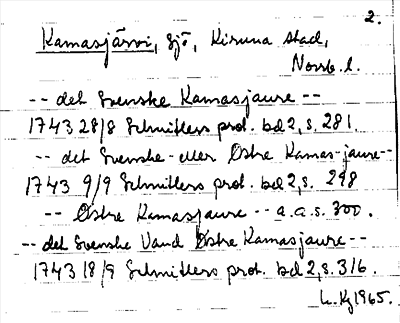 2.
Kamasjärvi, sjö, Kiruna stad,
Norrb. l.
-- det Svenske Kamasjaure --
1743 28/8 Schnitlers prot. bd 2, s. 281.
-- det Svenske eller Østre Kamas-jaure--
1743 9/9 Schnitlers prot. bd 2, s. 298
-- Østre Kamasjaure -- a.a.s. 300.
-- det Svenske Vand Østre Kamasjaure --
1743 18/9 Schnitlers prot. bd 2, s. 316.
1965.